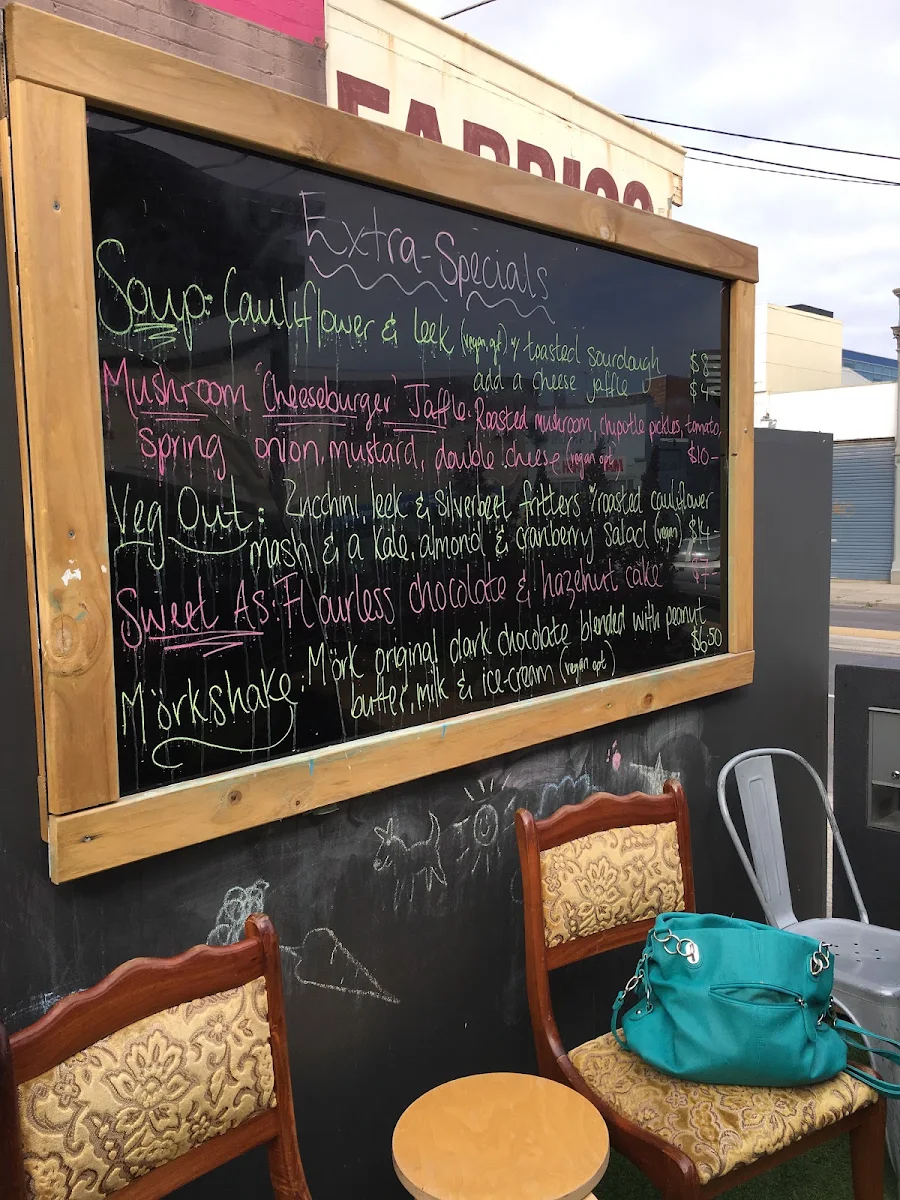 FABRICS
Extra-Specials
Soup: Cauliflower & leek (vegan opt) w/ toasted sourdough $8
add a cheese jaffle $4
Mushroom 'Cheeseburger' Jaffle: Roasted mushroom chipotle pickles, tomato,
spring onion, mustard, double cheese (vegan opt) $10-
Veg Out: Zucchini leek & silverbeet fritters w/ roasted cauliflower
mash & a kale, almond & cranberry salad (vegan) $14-
Sweet As: Flourless chocolate & hazelnut cake
Mörkshake: Mörk original dark chocolate blended with peanut
butter, milk & ice-cream (vegan opt) $6.50